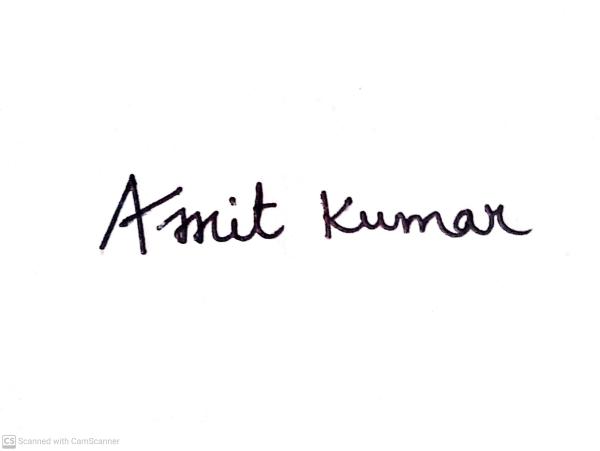 Amit Kumar
CS Scanned with CamScanner